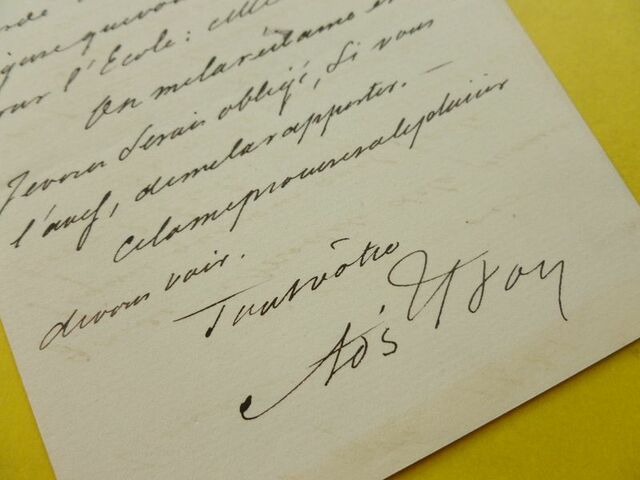 que vou
pour l'Ecole: Elle
On me la réclame en
Je vous serais obligé, si vous
l'avez, de me la rapporter. —
Cela me procurera le plaisir
de vous voir.
Tout vôtre
Ad's